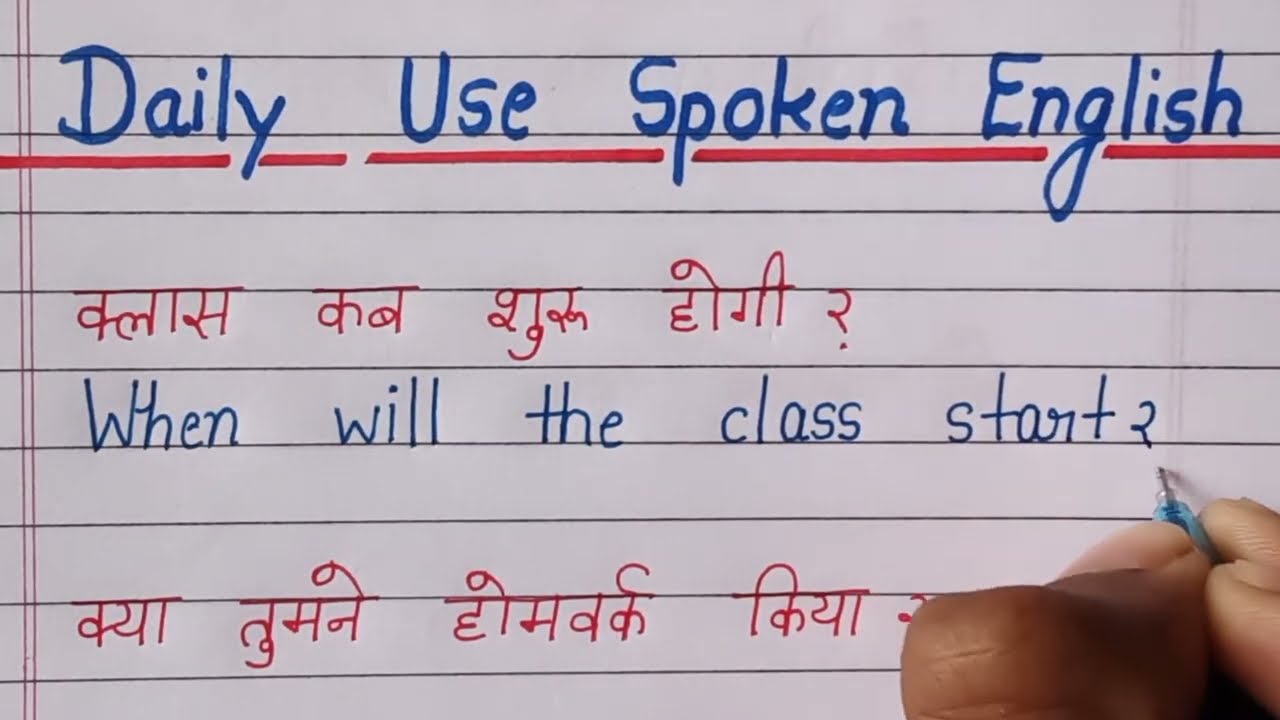 Daily Use Spoken English
क्लास कब शुरू होगी?
When will the class start?
क्या तुमने होमवर्क किया